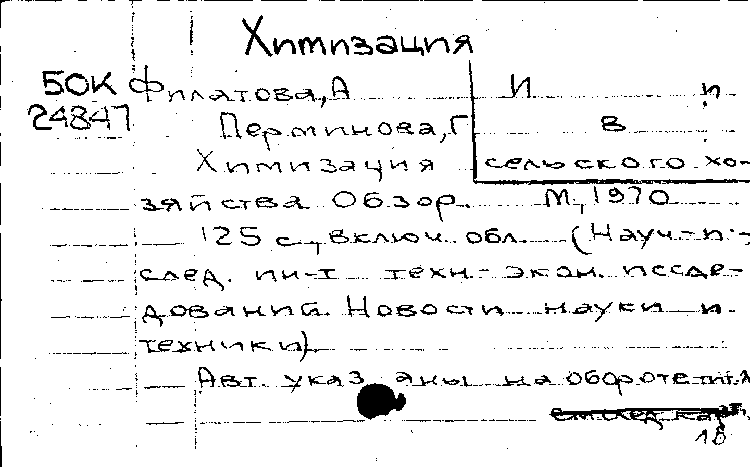 Химизация
БОК Филатова, А И и
24847 Перминова, Г В.
Химизация сельского хо-
зяйства Обзор. М, 1970
125 с, включ. обл. (Науч-и.-
след. ин-т техн.-экон. исследований. Новости науки и
техники).
Авт. указаны на обороте тит. л
18